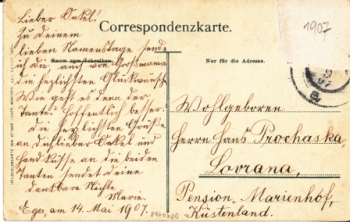 Lieber Onkel!
Zu Deinem
lieben Namenstage sende
ich Dir, auch von Großmama
die herzlichsten Glückwünsche
Wie geht es denn der
Tante? Hoffentlich besser.
Die herzlichsten Grüße
an Dich lieber Onkel und
Handküsse an die beiden
Tanten sendet Deine
dankbare Nichte
Marie.
Eger, am 14. Mai 1907.
Correspondenzkarte.
Raum zum Schreiben.
Nur für die Adresse.
1907
Wohlgeboren
Herrn Hans Prochaska,
Lovrana,
Pension "Marienhof,"
Küstenland.